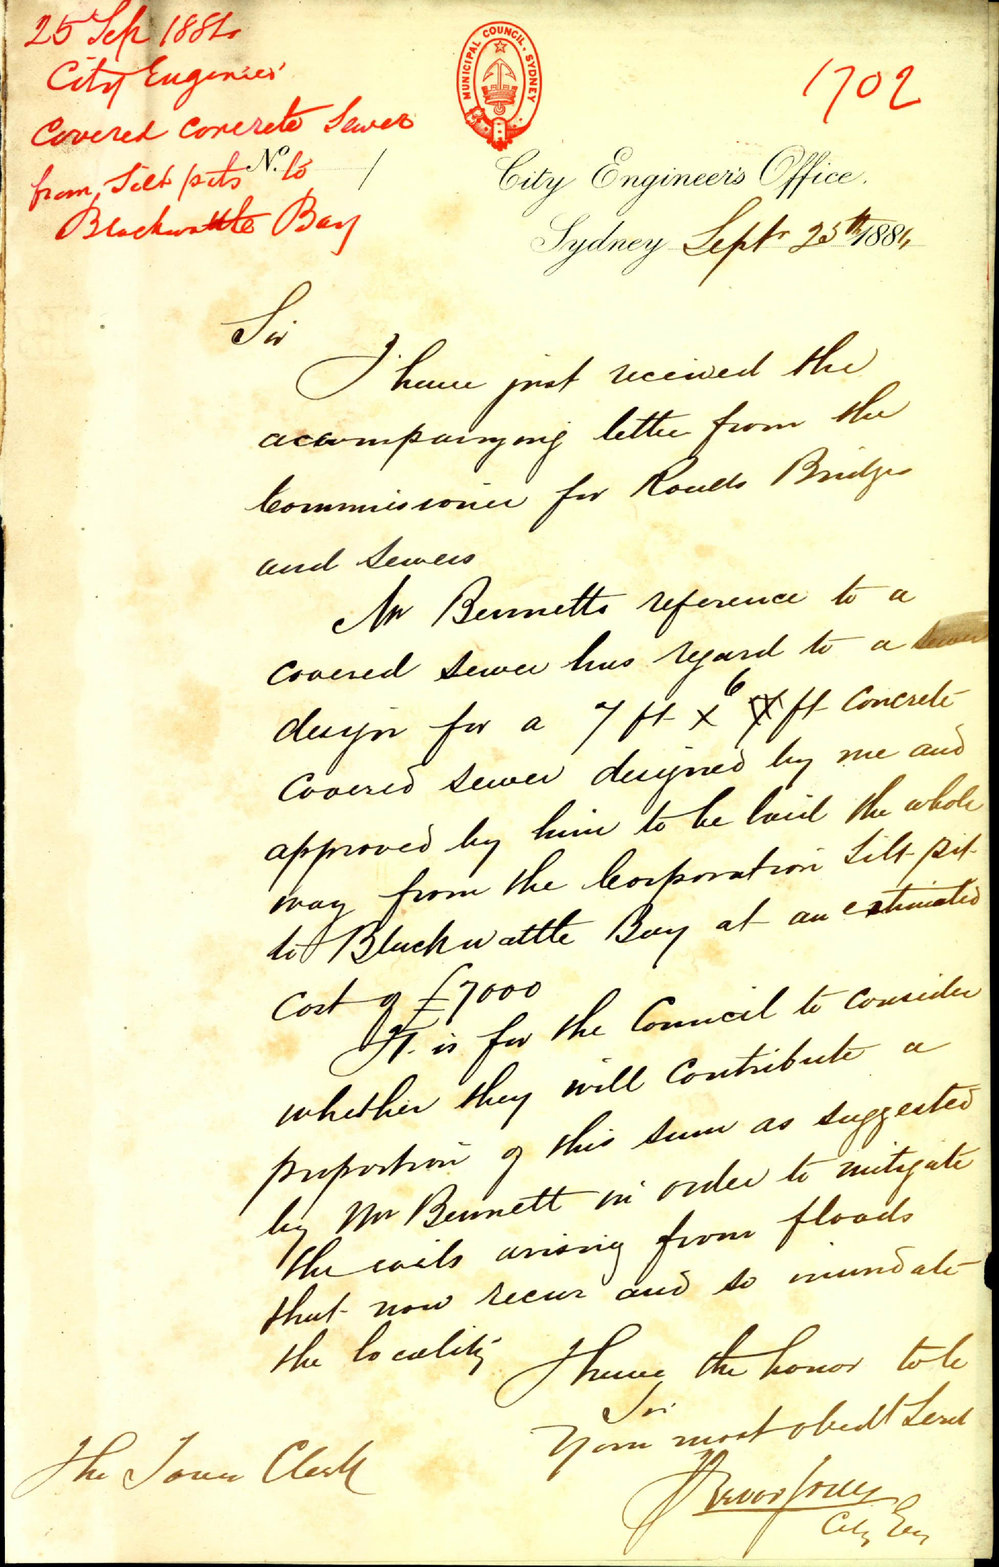 25 Sep 1884
City Engineer
Covered concrete Sewer
from Silt pits to
Blackwattle Bay
MUNICIPAL COUNCIL, SYDNEY
1702
No.
City Engineer's Office.
Sydney Septr 25th 1884
Sir
I have just received the
accompanying letter from the
Commissioner for Roads Bridges
and Sewers
Mr Bennetts reference to a
covered sewer has regard to a sewer
design for a 7 ft x 6 ft concrete
covered sewer designed by me and
approved by him to be laid the whole
way from the Corporation Silt pit
to Blackwattle Bay at an estimated
cost of £7000
It is for the Council to consider
whether they will contribute a
proportion of this sum as suggested
by Mr Bennett in order to mitigate
the evils arising from floods
that now recur and so inundate
the locality
I have the honor to be
Sir
Your most obedt Servt
The Town Clerk
City Eng